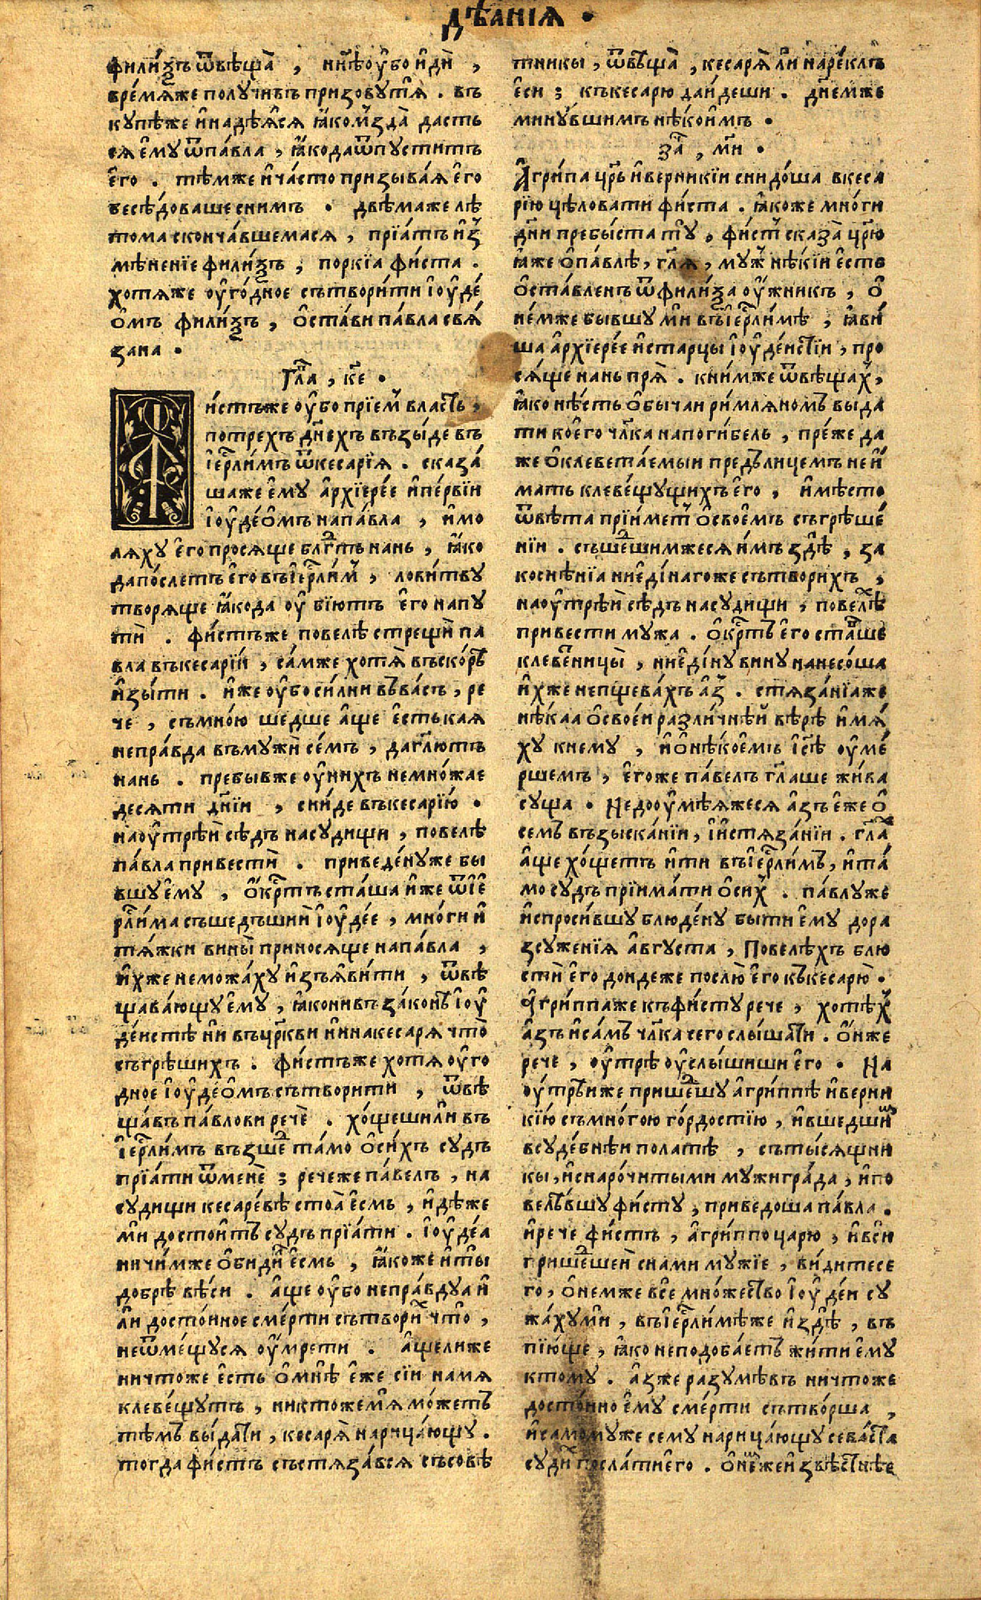 дѣанїа ·
фили́ѯъ ѿвѣща̀ , нн҃ѣ оу҆́бо и҆дѝ ,
вре́мѧже получи́въ призову́тѧ . въ
ку́пѣже и҆ надѣ́ѧсѧ ꙗ҆́ко мзда̀ дастъ
сѧ є҆му̀ ѿ па́вла , ꙗ҆́ко да ѿпу́ститъ
є҆го̀ . тѣ́мже и҆ ча́сто призыва́ѧ є҆го̀
бесѣ́доваше с ни́мъ · двѣ́маже лѣ
тома сконча́вшемасѧ , прїѧ́тъ и҆з
мѣне́нїе фили́ѯъ , поркїа фи́ста .
хотѧ́же оу҆го́дное сътвори́ти і҆оуде́
ѡмъ фили́ѯъ , ѡ҆ста́ви па́вла свѧ́
зана ·
Гла҃ , к҃е ·
и́стъже оу҆́бо прїе́мъ вла́сть ,
по тре́хъ дн҃ехъ възы́де въ
і҆ер҇ли́мъ ѿ кесарі́ѧ . сказа́
шаже є҆му̀ а҆рхїере́е и҆ пе́рвїи
і҆оуде́ѡмъ на па́вла , и҆ мо
лѧ́ху є҆го̀ просѧ́ще бл҃гть на нь , ꙗ҆́ко
да по́слетъ є҆го̀ въ і҆ер҇ли́мъ , лови́тву
творѧ́ще ꙗ҆́ко да оу҆бїю́тъ є҆го̀ на пу
тѝ . фи́стъже повелѣ̀ стрещѝ па
вла въ кесарі́и , са́мже хотѧ̀ въско́рѣ
и҆зы́ти . и҆̀же оу҆́бо си́лни въ ва́съ , ре
че , съ мно́ю ше́дше а҆́ще є҆́сть ка́ѧ
непра́вда въ му́жи се́мъ , да гл҃ютъ
на нь . пребы́вже оу҆ ни́хъ не мно́жае
десѧти дн҃їи , сни́де въ кесарі́ю ·
на оу҆́трїѝ сѣ́дъ на суди́щи , повелѣ̀
па́вла привестѝ . приведе́нуже бы́
вшу є҆му̀ , ѡ҆́кр҇тъ ста́ша и҆̀же ѿ і҆е
р҇ли́ма съше́дъшїи і҆оуде́е , мно́ги и҆
тѧ́жки вины̀ приносѧ́ще на па́вла ,
и҆́хже не можа́ху и҆зъꙗви́ти , ѿвѣ
щава́ющу є҆му̀ , ꙗ҆́ко ни въ зако́нъ і҆оу
де́истѣ ни въ цр҃кви ни на кесарѧ что̀
съгрѣши́хъ . фи́стъже хотѧ̀ оу҆го́
дное і҆оуде́ѡмъ сътвори́ти , ѿвѣ
ща́въ па́влови речѐ . хо́щеши ли въ
і҆ер҇ли́мъ възше́д та́мо ѡ҆ си́хъ су́дъ
прїѧ́ти ѿ менѐ ; рече́же па́велъ , на
суди́щи кесаре́вѣ стоѧ̀ є҆́смь , и҆дѣ́же
ми досто́итъ су́дъ прїѧ́ти . і҆оуде́а
ничи́мже ѡ҆би́дѣ є҆́смь , ꙗ҆́коже и҆ ты̀
добрѣ̀ вѣ́си . а҆́ще оу҆́бо непра́вдуа и҆
ли досто́иное сме́рти сътвори́х что̀ ,
не ѿме́щусѧ оу҆мре́ти . а҆́щелиже
ничто́же є҆́сть ѡ҆ мнѣ̀ є҆́же сїи на мѧ
клеве́щутъ , никто́же мѧ мо́жетъ
тѣ́мъ вы́дати , косарѧ̀ нарица́ющу .
тогда фи́стъ състѧза́всѧ съ совѣ́
тникы , ѿвѣща̀ , кесарѧ̀ ли наре́клъ
є҆сѝ ; къ кесарю да и҆де́ши . дн҃емже
мину́вшимъ нѣ́коимъ ·
за҃ , м҃и ·
А҆гри́па цр҃ь и҆ верники́и снидо́ша в кеса
рі́ю цѣлова́ти фи́ста . ꙗ҆́коже мно́ги
дн҃и пребы́ста ту̀ , фи́стъ сказа̀ цр҃ю
ꙗ҆́же ѡ҆ па́влѣ , гл҃ѧ , му́жъ нѣ́кїи є҆́сть
ѡ҆ста́вленъ ѿ фили́ѯа оу҆́жникъ , ѡ҆
не́мже бы́вшу ми въ і҆ер҇ли́мѣ , ꙗ҆ви́
ша а҆рхїере́е и҆ ста́рцы і҆оуде́истїи , про
сѧ́ще на нь прѧ̀ . к ни́мже ѿвѣща́х ,
ꙗ҆́ко нѣ́сть ѡ҆бы́чаи ри́млѧномъ выда
ти кое́го чл҃ка на поги́бель , пре́же да
же ѡ҆клевета́емыи предъ лице́мъ не и҆́
мать клеве́щущихъ є҆го̀ , и҆ мѣ́сто
ѿвѣ́та прїи́метъ ѡ҆ свое́мъ съгрѣше́
нїи . съше́дшимжесѧ и҆́мъ здѣ̀ , за
коснѣ́нїа ни є҆ди́нагоже сътвори́хъ ,
на оу҆́трїѝ сѣ́дъ на суди́щи , повелѣ́х
привести му́жа . ѡ҆́кр҇тъ є҆го̀ ста́вше
клеве́тницы̀ , ни є҆ди́ну вину̀ нанесо́ша
и҆́хже непщева́хъ а҆́з . стѧза́нїаже
нѣ́каа ѡ҆ свое́и разли́чнѣй вѣ́рѣ и҆мѧ́
ху к нему̀ , и҆ ѡ҆ нѣ́коемъ і҆с҃ѣ оу҆ме́
ршемъ , є҆го́же па́велъ гл҃аше жи́ва
су́ща . Недооу҆мѣ́ѧжесѧ а҆́зъ є҆́же ѡ҆
се́мъ възыска́нїи , и҆ и҆стѧза́нїи . гл҃ах
а҆́ще хо́щетъ и҆ти въ і҆ер҇ли́мъ , и҆ та́
мо су́дъ прїима́ти ѡ҆ си́х . па́влуже
и҆спроси́вшу блюде́ну бы́ти є҆му̀ до ра
зсуже́нїѧ а҆́вгуста , Повелѣ́хъ блю
стѝ є҆го̀ до́ндеже послю̀ є҆го̀ къ кесарю̀ .
А҆гри́ппаже къ фи́сту рече , хотѣ́х
а҆́зъ и҆ са́мъ чл҃ка сего слы́шати . ѻ҆́нже
рече , оу҆́трѣ оу҆слы́шиши є҆го̀ . На
оу҆́трѣиже прише́дшу а҆гри́ппѣ и҆ верни
кі́ю съ мно́гою го́рдостїю , и҆ вше́дшим
в суде́бнѣи пола́тѣ , съ ты́сѧщни
кы , и҆ с наро́читыми му́жи гра́да , и҆ по
велѣ́вшу фи́сту , приведо́ша па́вла .
и҆ рече фи́стъ , а҆гри́ппо царю , и҆ вси
прише́дшеи с на́ми му́жїе , ви́дите се
го̀ , ѡ҆ не́мже все мно́жество і҆оуде́и су
жа́ху ми , въ і҆ер҇ли́мѣже и҆ здѣ̀ , въ
пїю́ще , ꙗ҆́ко не подоба́етъ жи́ти є҆му̀
ктому̀ . а҆́зже разумѣ́въ ничто́же
досто́ино є҆му̀ сме́рти сътво́рша ,
и҆ самому́же сему нарица́ющу сева́ста
суди́х посла́ти є҆го̀ . ѡ҆ не́мже и҆звѣ́стнѣе